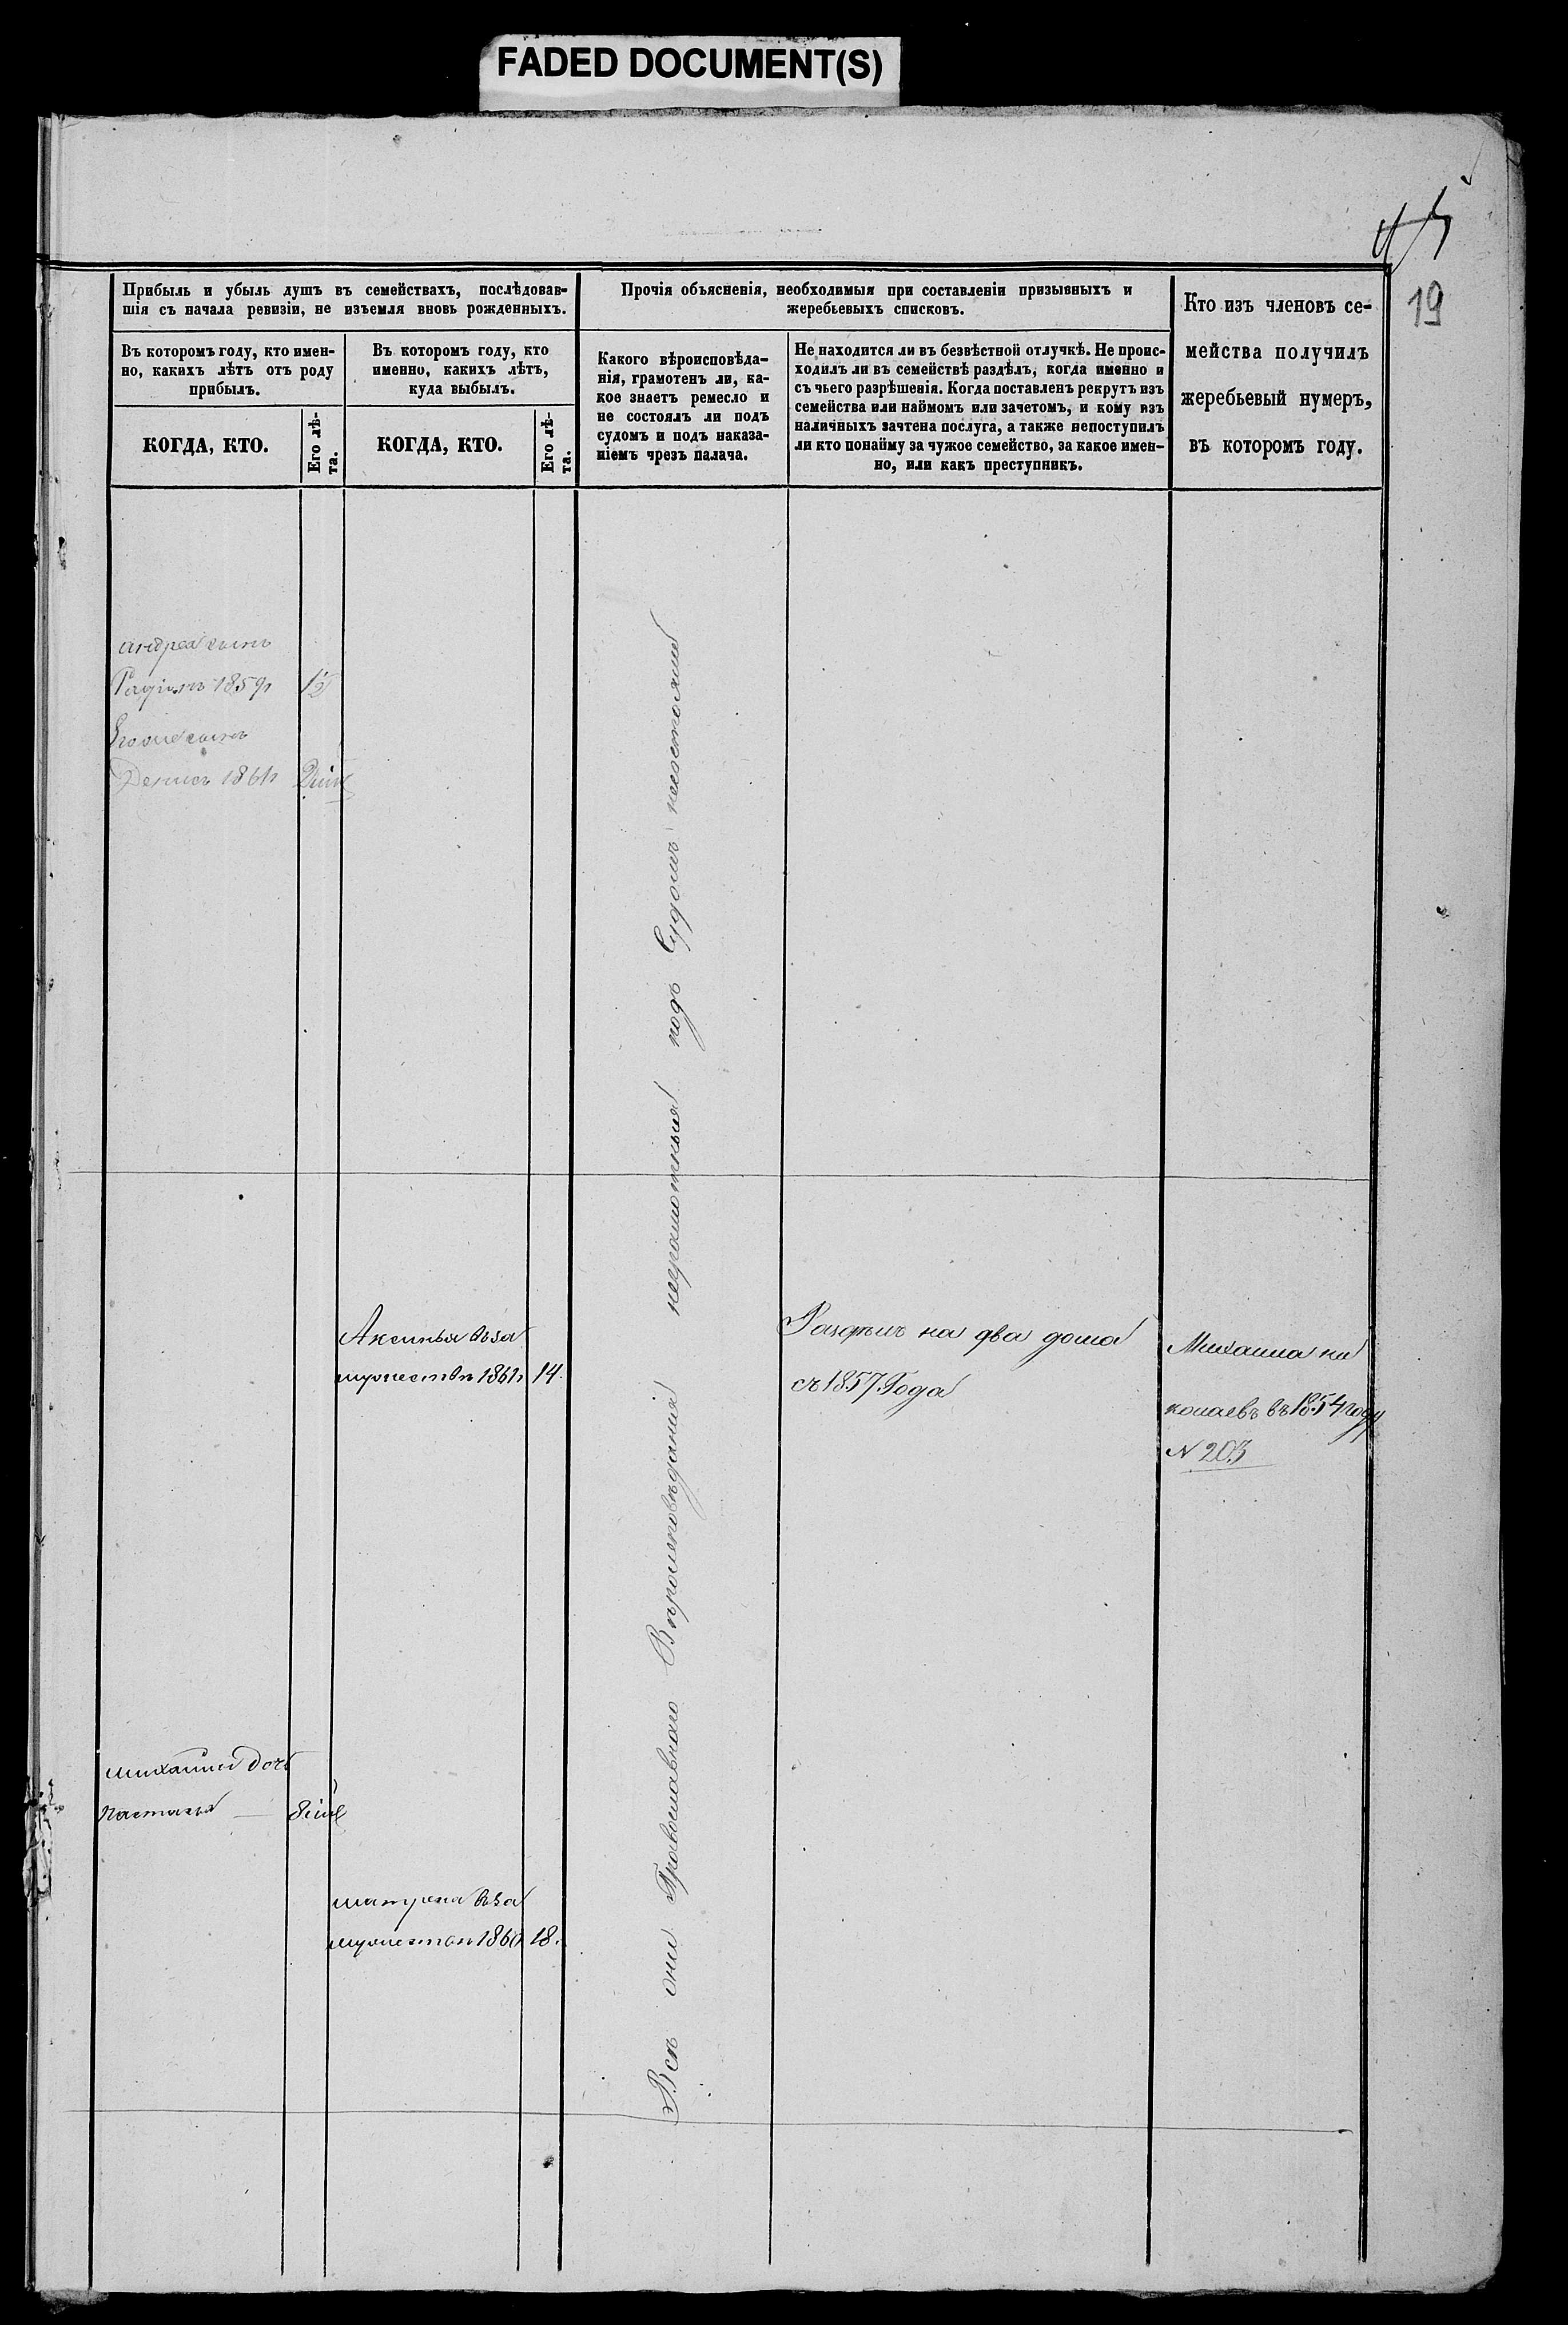 FADED DOCUMENT(S)
45
19
Прибыль и убыль душъ въ семействахъ, послѣдовав-
шія съ начала ревизіи, не изъемля вновь рожденныхъ.
Въ которомъ году, кто имен-
но, какихъ лѣтъ отъ роду
прибылъ.
КОГДА, КТО.
Его лѣ-
та.
Въ которомъ году, кто
именно, какихъ лѣтъ,
куда выбылъ.
КОГДА, КТО.
Его лѣ-
та.
Прочія объясненія, необходимыя при составленіи призывныхъ и
жеребьевыхъ списковъ.
Какого вѣроисповѣда-
нія, грамотенъ ли, ка-
кое знаетъ ремесло и
не состоялъ ли подъ
судомъ и подъ наказа-
ніемъ чрезъ палача.
Не находится ли въ безвѣстной отлучкѣ. Не проис-
ходилъ ли въ семействѣ раздѣлъ, когда именно и
съ чьего разрѣшенія. Когда поставленъ рекрутъ изъ
семейства или наймомъ или зачетомъ, и кому изъ
наличныхъ зачтена послуга, а также непоступилъ
ли кто понайму за чужое семейство, за какое имен-
но, или какъ преступникъ.
Кто изъ членовъ се-
мейства получилъ
жеребьевый нумеръ,
въ которомъ году.
андрея сынъ
1859
сынъ
Денисъ 1861
Аксинья въ за
мужествѣ 1861 14.
Раздѣлъ на два дома
съ 1857 Года
Михаила ни
колаевъ въ 1854 году
N 203
михаила дочь
настасья
матрена въ за
мужествѣ 1860 18.
Всѣ они Православнаго Вѣроисповѣданія неграмотныя подъ Судомъ несостояли